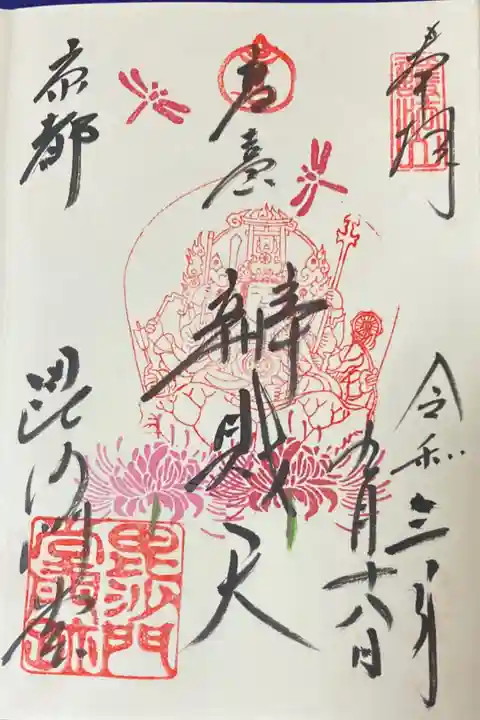 奉拝
令和三年
九月十八日
高臺
辨財天
京都
毘沙門堂
毘沙門
堂門跡